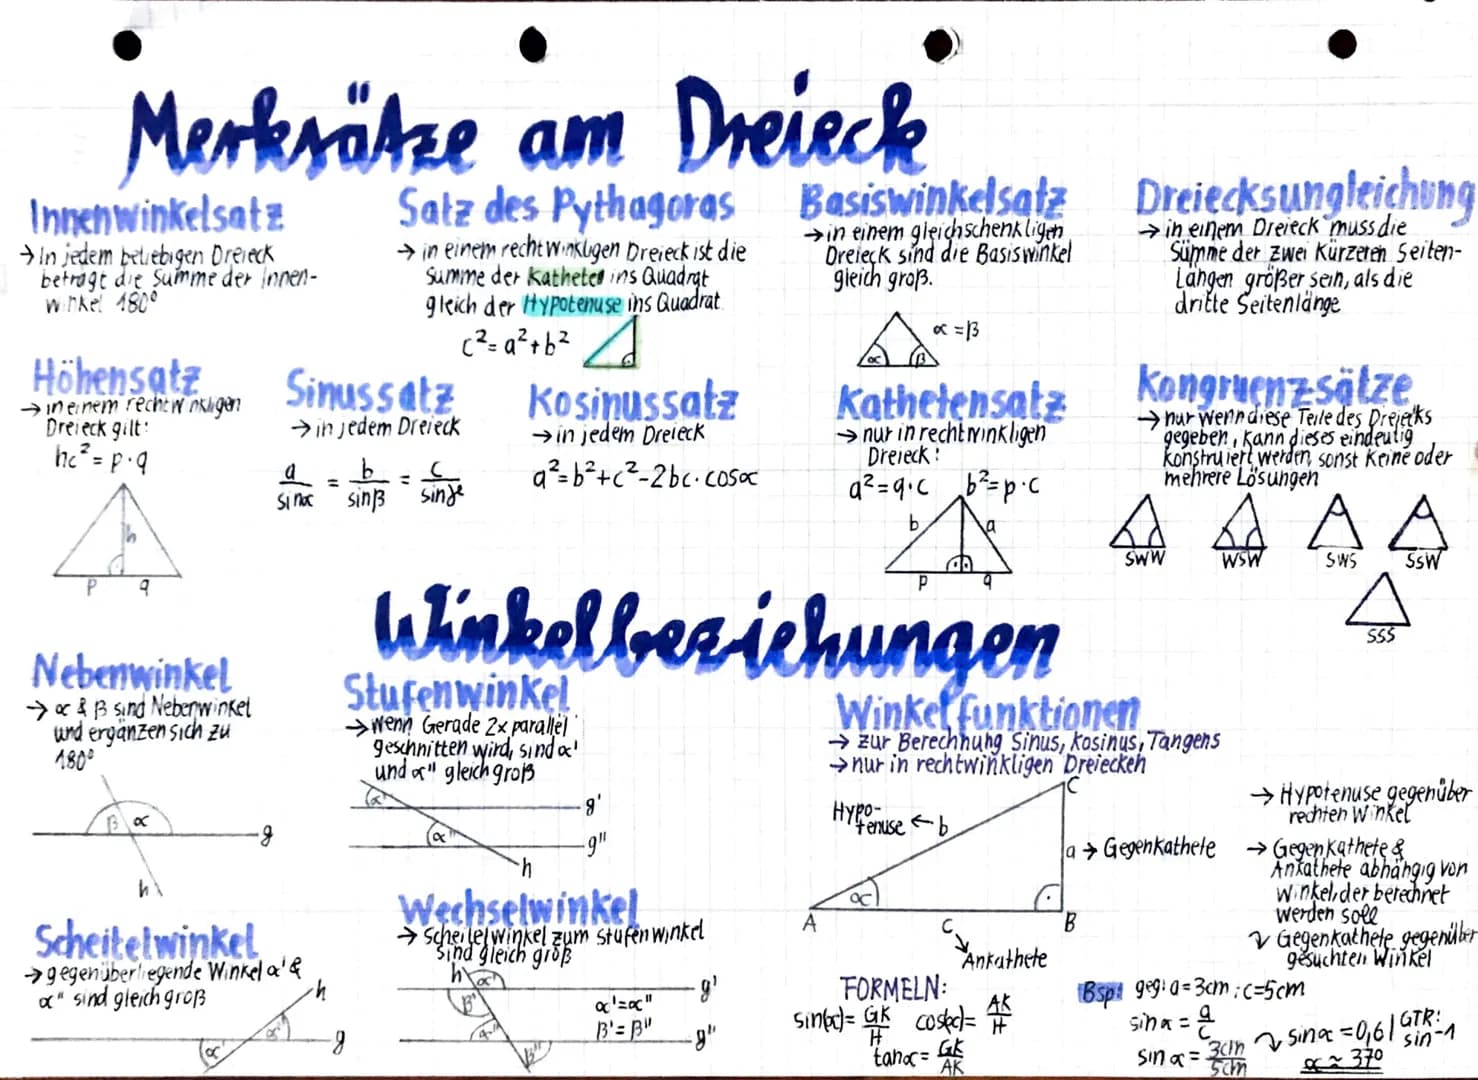 Merksätze am Dreieck
Innenwinkelsatz
→ In jedem beliebigen Dreieck
beträgt die Summe der Innen-
winkel 180°
Satz des Pythagoras
→ in einem rechtwinkligen Dreieck ist die
Summe der Katheten ins Quadrat
gleich der Hypotenuse ins Quadrat
c² = a² + b²
Basiswinkelsatz
→ in einem gleichschenkligen
Dreieck sind die Basiswinkel
gleich groß.
α = β
α β
Dreiecksungleichung
→ in einem Dreieck muss die
Summe der zwei kürzeren Seiten-
längen größer sein, als die
dritte Seitenlänge
Höhensatz
→ in einem rechtwinkligen
Dreieck gilt:
hc² = p·q
h
p q
Sinussatz
→ in jedem Dreieck
a/sinα = b/sinβ = c/sinγ
Kosinussatz
→ in jedem Dreieck
a² = b² + c² - 2bc · cosα
Kathetensatz
→ nur in rechtwinkligen
Dreieck:
a² = q·c b² = p·c
b a
p q
Kongruenzsätze
→ nur wenn diese Teile des Dreiecks
gegeben, kann dieses eindeutig
konstruiert werden, sonst keine oder
mehrere Lösungen
SWW WSW SWS SSW
SSS
Winkelbeziehungen
Nebenwinkel
→ α & β sind Nebenwinkel
und ergänzen sich zu
180°
β α
g
h
Stufenwinkel
→ wenn Gerade 2x parallel
geschnitten wird, sind α'
und α'' gleich groß
α' g'
α'' g''
h
Winkelfunktionen
→ zur Berechnung Sinus, Kosinus, Tangens
→ nur in rechtwinkligen Dreiecken
C
Hypo-
tenuse ← b
a → Gegenkathete
α
A c B
Ankathete
→ Hypotenuse gegenüber
rechten Winkel
→ Gegenkathete &
Ankathete abhängig von
Winkel, der berechnet
werden soll
↷ Gegenkathete gegenüber
gesuchten Winkel
Scheitelwinkel
→ gegenüberliegende Winkel α' &
α'' sind gleich groß
h
α''
α' g
Wechselwinkel
→ Scheitelwinkel zum Stufenwinkel
sind gleich groß
h α' g'
β'
α'' g''
β''
α' = α''
β' = β''
FORMELN:
sin(α) = GK/H cos(α) = AK/H
tanα = GK/AK
Bsp: geg: a = 3cm ; c = 5cm
sin α = a/c
sin α = 3cm/5cm
↷ sin α = 0,6 | GTR: sin-1
α ≈ 37°